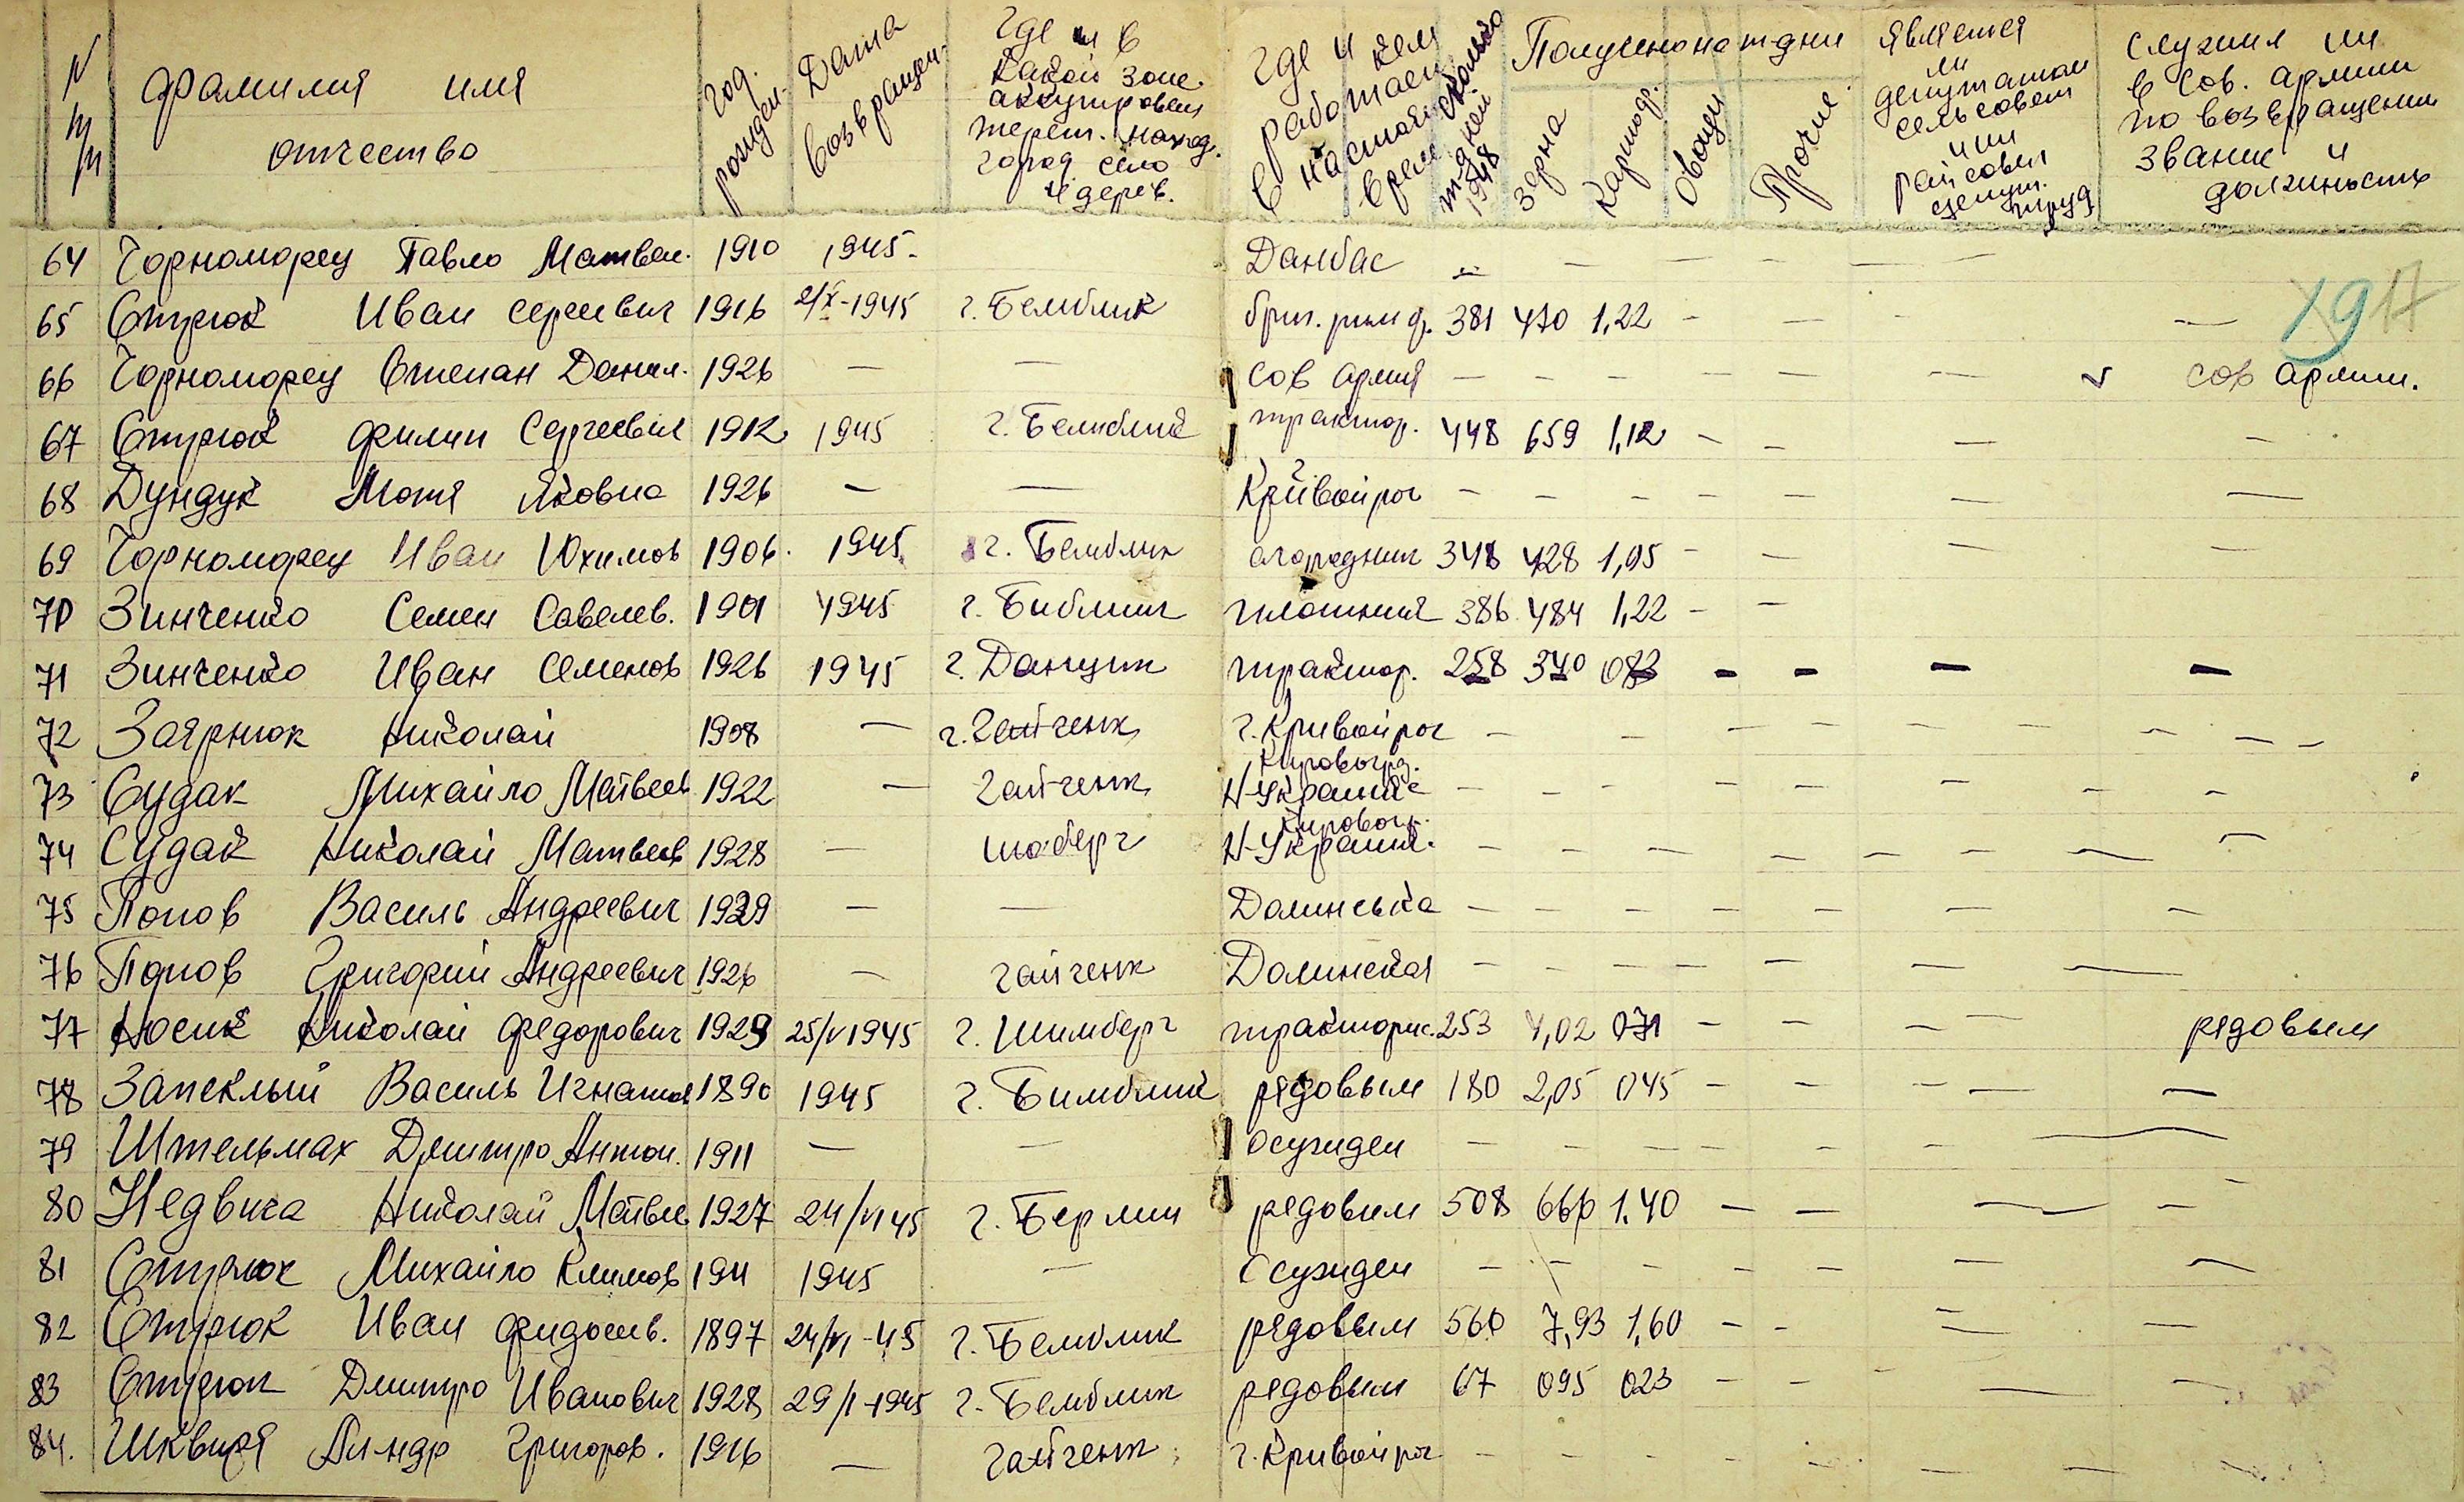 N п/п
фамилия имя отчество
год рожден.
Дата возвращен.
Где и в какой зоне аккупирован терет. наход. город село и дерев.
Где и кем работает в настоя. врем
сколько т-дней 1948
Получено на т-дни
зерна
картоф.
Овощи
Прочие
является ли депутатом сельсовет или райсовет депут. труд
служил ли в Сов. армии по возвращении звание и должность
64 Чорноморец Павло Матвеи. 1910 1945. Данбас — — — — — —
1917
65 Стрюк Иван Сергеевич 1916 2/X-1945 г. Бемблик бриг. 381 470 1,22 — — — —
66 Чорноморец Степан Данил. 1926 — — Сов армия — — — — — — v сов армии.
67 Стрюк Филип Сергеевич 1912 1945 г. Бемблик трактор. 448 659 1,12 — — — —
68 Дундук Мотя Яковна 1926 — — Кривойрог — — — — — — —
69 Чорноморец Иван Юхимов 1906. 1945. г. Бемблик огородник 348 428 1,05 — — — —
70 Зинченко Семен Савелев. 1901 1945 г. Библинг плотник 386 484 1,22 — —
71 Зинченко Иван Семенов 1926 1945 г. Данцит трактор. 258 340 083 — — — —
72 Заярнюк Николай 1908 — г. Гайченк г. Кривойрог — — — — — — — — —
73 Судак Михайло Матвеев 1922 — Гайченк Кировогр. Н-Украинке — — — — — — — —
74 Судак Николай Матвеев 1928 — Шоберг Кировогр. Н-Украин. — — — — — — — —
75 Попов Василь Андреевич 1929 — — Долинська — — — — — — —
76 Попов Григорий Андреевич 1926 — гайченк Долинская — — — — — — —
77 Носик Николай Федорович 1929 25/V 1945 г. Шимберг тракторис. 253 4,02 071 — — — — рядовым
78 Запеклый Василь Игнатов 1890 1945 г. Бимблик рядовым 180 2,05 045 — — — — —
79 Штельмах Дмитро Антон. 1911 — — Осужден — — — — — — —
80 Недвига Николай Матвее 1927 24/VI 45 г. Берлин рядовим 508 660 1.40 — — — — —
81 Стрюк Михайло Климов 1911 1945 — Осужден — — — — — — —
82 Стрюк Иван Фидосив. 1897 24/VI-45 г. Бемблик рядовым 560 7,93 1,60 — — — —
83 Стрюк Дмитро Иванович 1928 29/I-1945 г. Бемблик рядовым 67 095 023 — — — — —
84. Шквиря Ал-ндр Григоров. 1916 — Гайченк г. Кривойрог — — — — — — — —